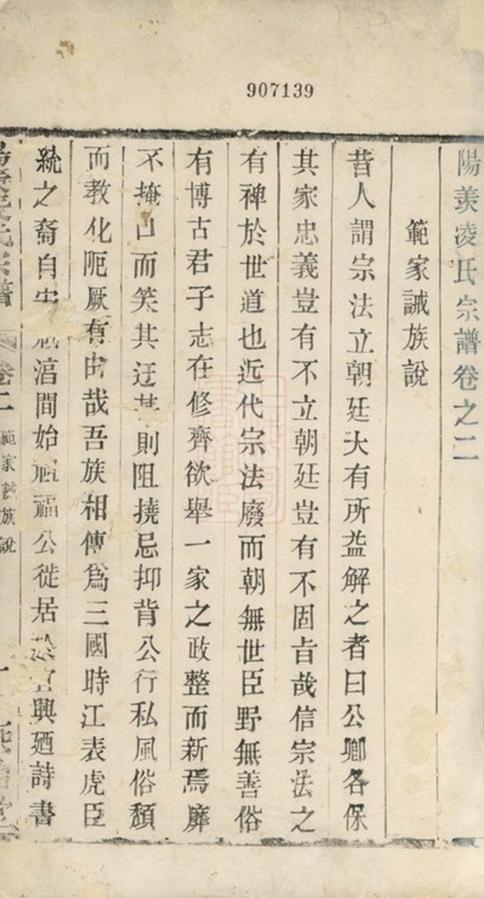 907139
陽羨凌氏宗譜卷之二
範家誡族說
昔人謂宗法立朝廷大有所益解之者曰公卿各保
其家忠義豈有不立朝廷豈有不固旨哉信宗法之
有裨於世道也近代宗法廢而朝無世臣野無善俗
有博古君子志在修齊欲舉一家之政整而新焉靡
不掩口而笑其迂甚則阻撓忌抑背公行私風俗頹
而教化阨厥有由哉吾族相傳爲三國時江表虎臣
統之裔自宋 間始 福公徙居 宜興廼詩書
氏宗譜 卷二 範家誡族說